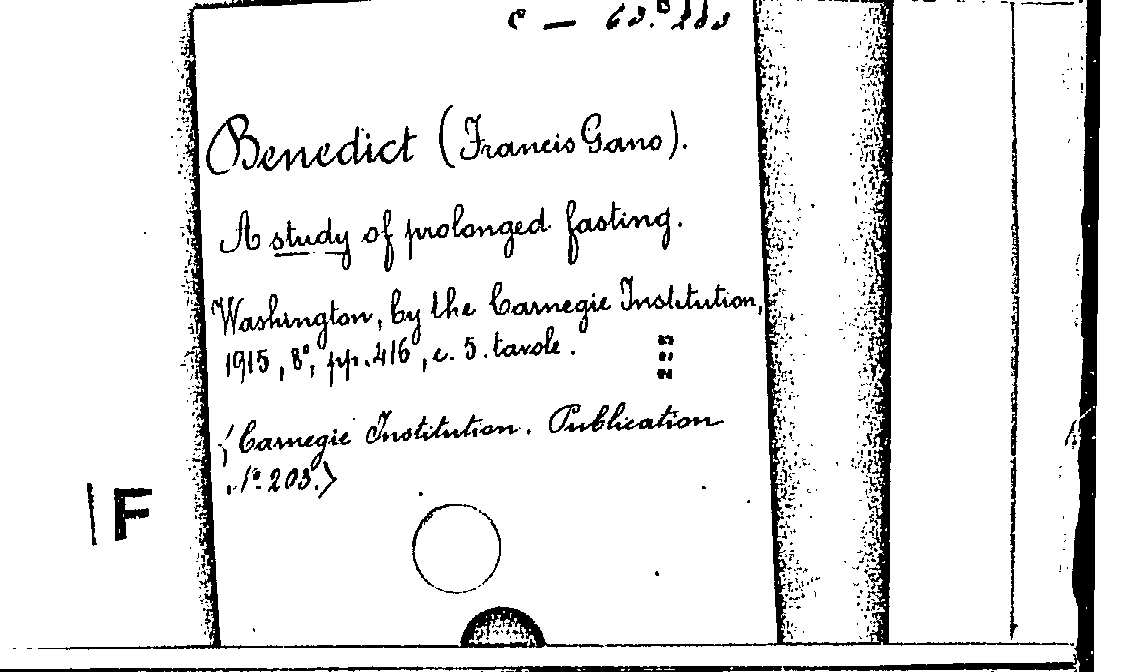 Benedict (Francis Gano).
A study of prolonged fasting.
Washington, by the Carnegie Institution,
1915, 8°, pp. 416, c. 5. tavole.
(Carnegie Institution. Publication
N° 203.)
F